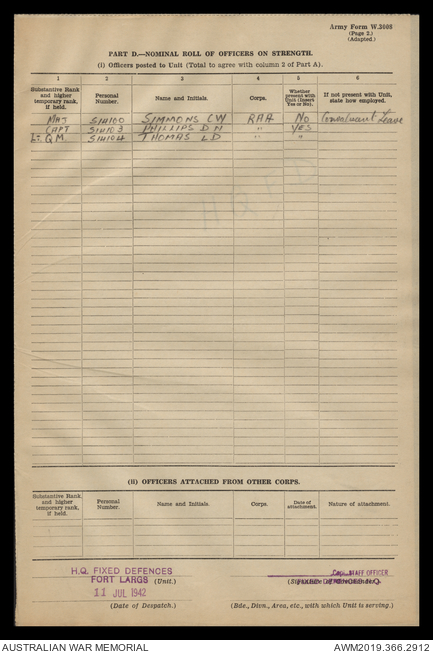 Army Form W.3008
(Page 2.)
(Adapted.)
PART D.—NOMINAL ROLL OF OFFICERS ON STRENGTH.
(i) Officers posted to Unit (Total to agree with column 2 of Part A).
1 2 3 4 5 6
Substantive Rank and higher temporary rank, if held. Personal Number. Name and Initials. Corps. Whether present with Unit (Insert Yes or No). If not present with Unit, state how employed.
MAJ S14100 SIMMONS CW RAA No Leave
CAPT S14103 PHILLIPS D N " YES
Lt QM S14104 THOMAS L D " "
(ii) OFFICERS ATTACHED FROM OTHER CORPS.
Substantive Rank and higher temporary rank, if held. Personal Number. Name and Initials. Corps. Date of attachment. Nature of attachment.
H.Q. FIXED DEFENCES
FORT LARGS (Unit.)
11 JUL 1942
(Date of Despatch.)
Capt. STAFF OFFICER
FIXED DEFENCES H.Q.
(Bde., Divn., Area, etc., with which Unit is serving.)
AUSTRALIAN WAR MEMORIAL
AWM2019.366.2912